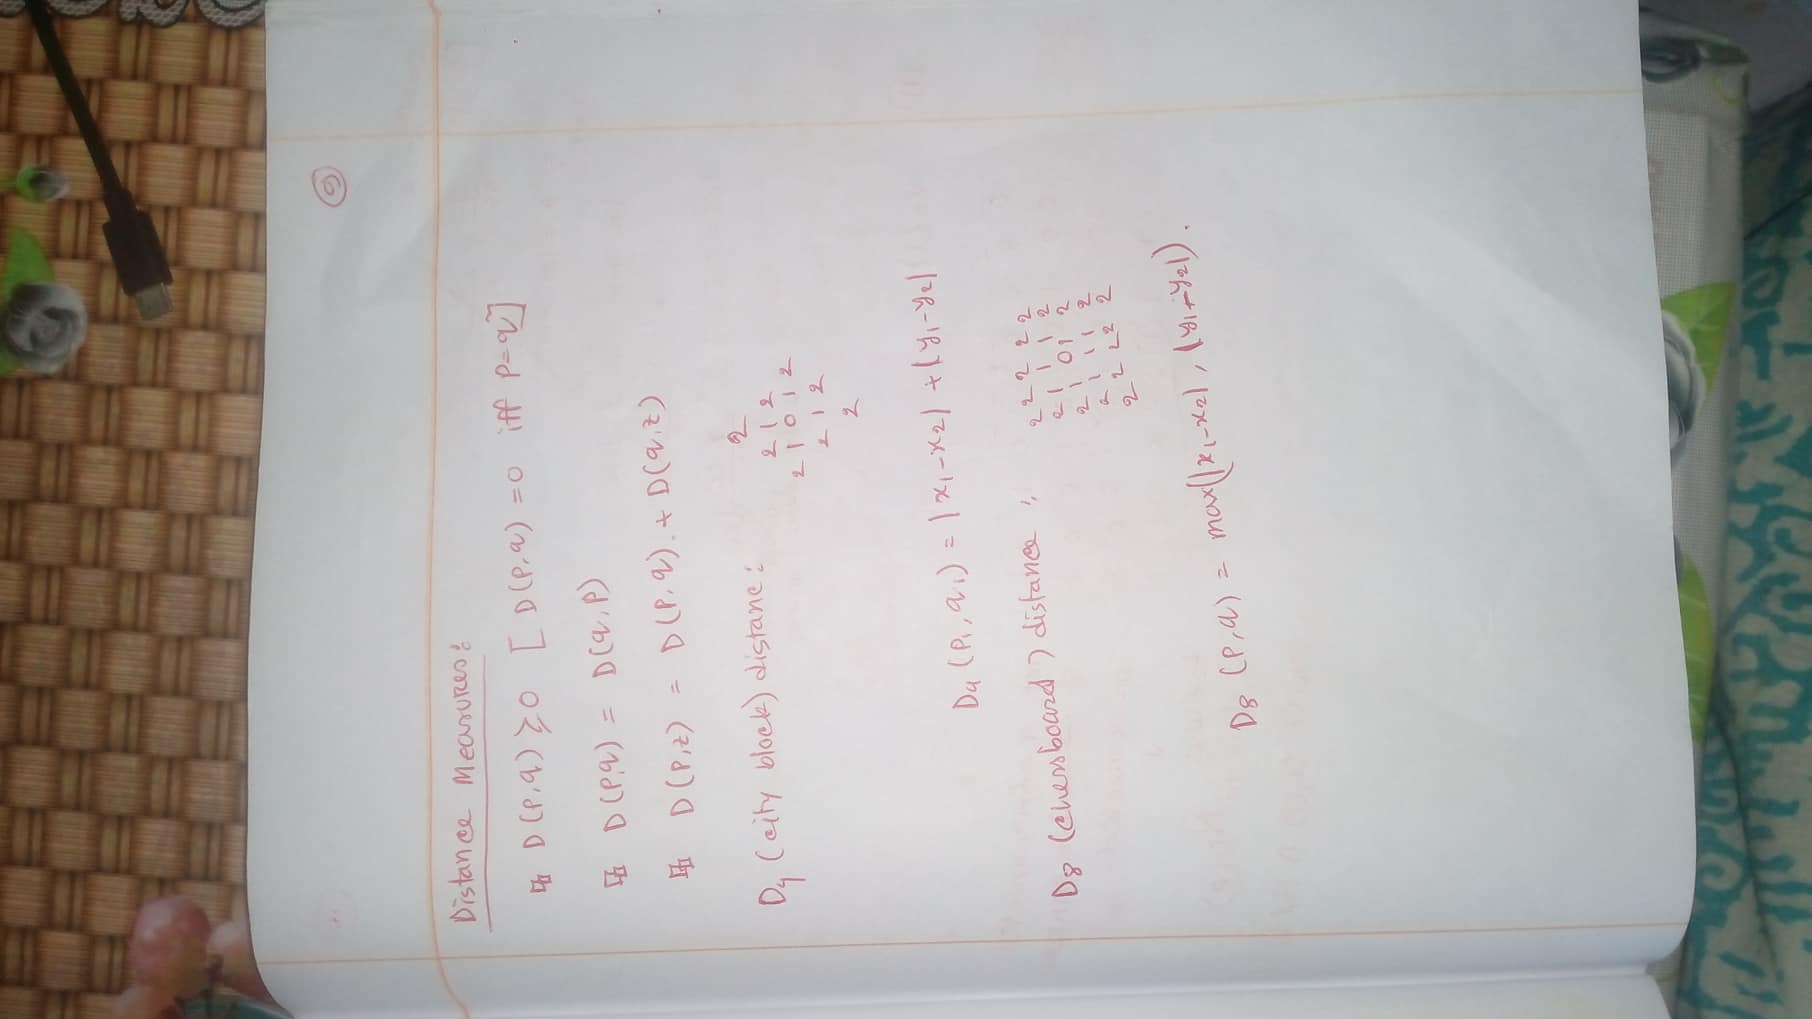 9
Distance Measures:
D(p,q) ≥ 0 [D(p,q) = 0 iff p=q]
D(p,q) = D(q,p)
D(p,z) = D(p,q) + D(q,z)
D4 (city block) distance:
2
2 1 2
2 1 0 1 2
2 1 2
2
D4 (p1,q1) = |x1-x2| + |y1-y2|
D8 (chessboard) distance:
2 2 2 2 2
2 1 1 1 2
2 1 0 1 2
2 1 1 1 2
2 2 2 2 2
D8 (p,q) = max(|x1-x2|, |y1-y2|).